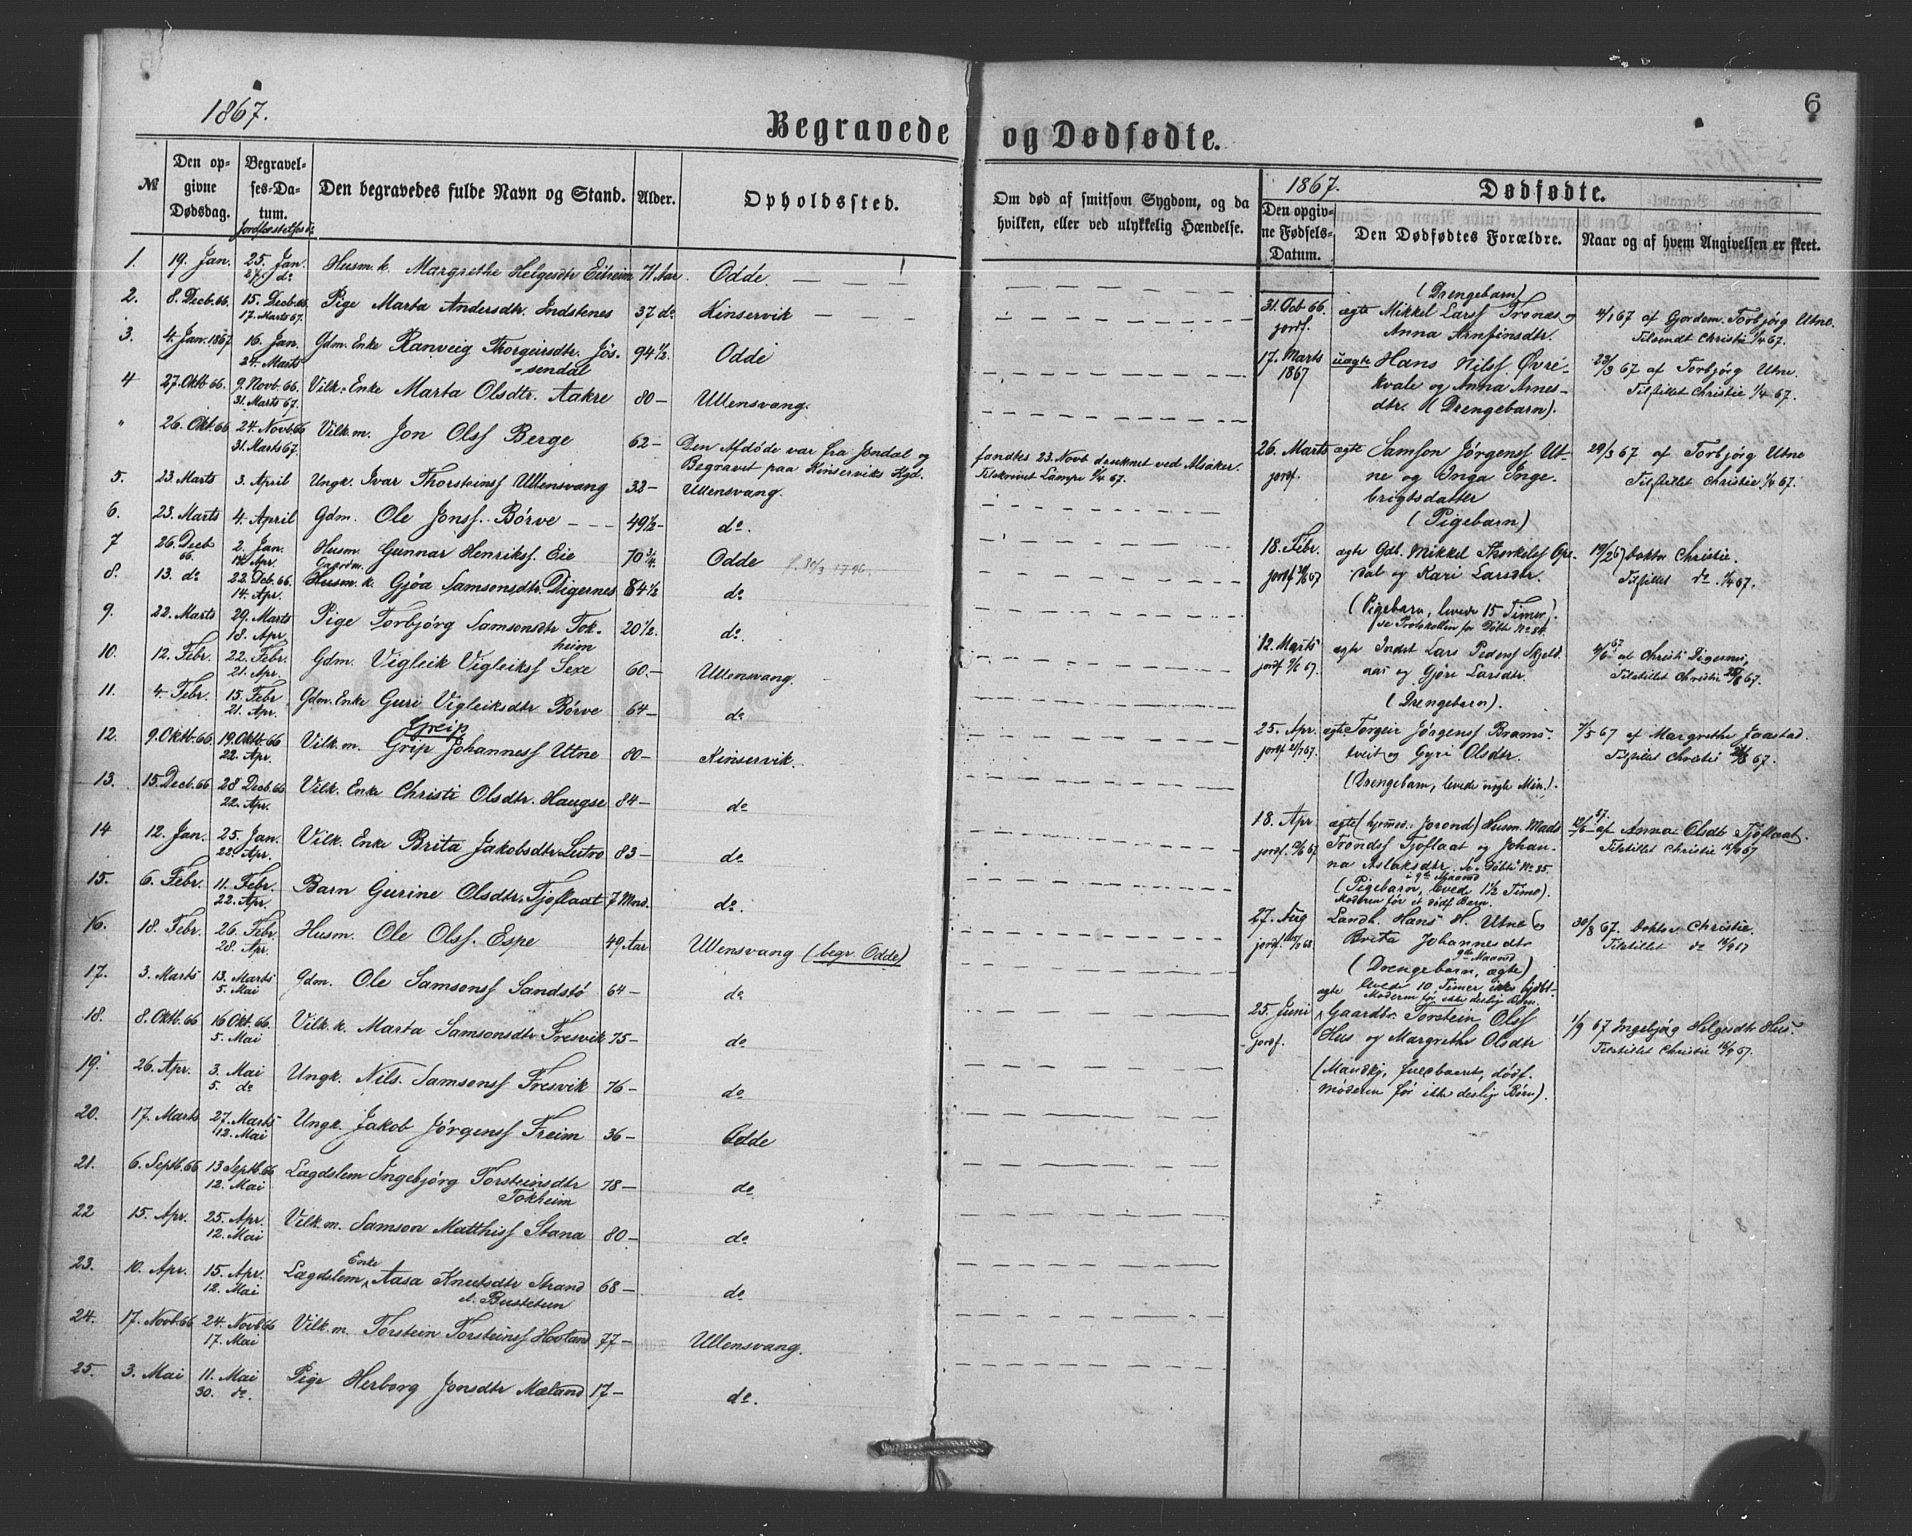 1867.
6
Begravede og Dødfødte.
№
Den opgivne Dødsdag.
Begravelses-Datum.
Jordfæstelses d:
Den begravedes fulde Navn og Stand.
Alder.
Opholdssted.
Om død af smitsom Sygdom, og da hvilken, eller ved ulykkelig Hændelse.
1. 19. Jan. 25. Jan. 27. do Husm. k. Margrethe Helgesdtr Eitrheim 71 Aar Odde
2. 8. Decb. 66. 15. Decb. 66 17. Marts 67. Pige Marta Andersdtr. Indstenes 37 do Kinservik
3. 4. Jan. 1867 16. Jan. 24. Marts Gdm. Enke Ranveig Thorgeirsdtr. Jøssendal 94 1/2. Odde
4 27. Oktb 66. 9. Novb. 66. 31. Marts 67. Vilk. Enke Marta Olsdtr. Aakre 80 — Ullensvang.
" 26. Okt. 66 24. Novb. 66 31. Marts 67. Vilk. m. Jon Olsf Berge 62 — Den Afdøde var fra Jondal og Begravet paa Kinserviks Kgd. fandtes 23. Novb druknet ved Alsåker.
5. 23. Marts 3. April Ungk. Ivar Thorsteinsf Ullensvang 32 — Ullensvang.
6. 23. Marts 4. April Gdm. Ole Jonsf. Børve 49 1/2 — do.
7 26. Decb 66. 2. Jan. 14. Apr. Husm. Gunnar Henriksf. Eie 70 3/4. Odde f. 30/3 1796.
8. 13. do 22. Deb. 66. 14. Apr. Husm. k. Gjøa Samsonsdtr. Digernes 84 1/2 do.
9. 22. Marts 29. Marts 18. Apr. Pige Torbjørg Samsonsdtr Tokheim 20 1/2. do.
10. 12. Febr. 22. Febr. 21. Apr. Gdm. Vigleik Vigleiksf Sexe 60. — Ullensvang.
11. 4. Febr. 15. Febr 21. Apr. Gdm. Enke Guri Vigleiksdtr Børve 64 — do
12. 9. Oktb. 66 19. Oktb. 66 22. Apr. Vilk. m. Grip Johannesf Utne 80 — Kinservik.
Greip
13. 15. Decb. 66 28 Decb. 66 22. Apr. Vilk. Enke Christi Olsdtr. Haugse 84 — do
14 12. Jan. 25. Jan. 22. Apr. Vilk. Enke Brita Jakobsdtr Lutro 83 — do
15. 6. Febr. 11. Febr. 22. Apr. Barn Gurine Olsdtr. Tjoflaat 7 Mnd. do.
16. 18. Febr. 26. Febr. 28. Apr. Husm. Ole Olsf. Espe 49 Aar Ullensvang (begr. Odde)
17. 3. Marts 13. Marts 5. Mai Gdm. Ole Samsonsf Sandstø 64 — do
18. 8. Oktb. 66 16 Okt. 66 5. Mai Vilk. k. Marta Samsonsdtr. Fresvik 75 — do
19. 26. Apr. 3. Mai 5. do Ungk. Nils Samsonsf Fresvik 76 — do
20. 17. Marts 27. Marts 12. Mai Ungk. Jakob Jørgensf Freim 36 — Odde
21. 6. Septb. 66 13 Septb. 66 12. Mai Lægdslem Ingebjørg Torsteinsdtr Tokheim 78 — do
22 15. Apr. 25. Apr 12. Mai Vilk. m. Samson Matthisf Stana 80 — do
23. 10. Apr. 15. Apr. 12. Mai Lægdslem Enke Aasa Knutsdtr Strand 68 — do
24. 17. Novb. 66 24. Novb. 66 17. Mai Vilk. m. Torstein Torsteinsf Hovland 77 — Ullensvang.
25. 3. Mai 11. Mai 30. do. Pige Herborg Jonsdtr Mæland 17 — do.
1867. Dødfødte.
Den opgivne Fødsels-Datum.
Den Dødfødtes Forældre.
Naar og af hvem Angivelsen er skeet.
31. Oct 66. jordf. (Drengebarn) ægte Mikkel Larsf Tronæs og Anna Arnfinsdtr. 4/1 67 af Gjordem. Torbjørg Utne. Tilsendt Christie 1/4 67.
17. Marts 1867 uægte Hans Nilsf Øvrekvale og Anna Arnesdtr. (Drengebarn). 23/3 67 af Torbjørg Utne. Tilstillet Christie 1/4 67.
26. Marts jordf. ægte Samson Jørgensf Utne og Inga Engebrigtsdatter (Pigebarn) 29/3 67 af Torbjørg Utne Tilstillet Christie 1/4 67.
18. Febr. ægte Gdb. Mikkel Thorkelsf og Kari Larsdtr. (Pigebarn, levede 15 Timer). se Protokollen for Døbte No 84. doktor Christie.
12. Marts ægte Inderst Lars Pedersf Skjeldaas og Gjøri Larsdtr. (Drengebarn). af Christi Digernes, Tilstillet Christie
25. Apr. ægte Torgeir Jørgensf og Gyri Olsdtr. (Drengebarn, levede nogle Min.). 7/5 67 af Margrethe Jaastad. Tilstillet Christie
18. Apr ægte (hjemmed. Jorond) Husm. Mads Trondsf Tjoflaat og Johanna Aslaksdtr. se Døbte No 85. (Pigebarn, levede 1 1/2 Time). Moderen før et dødf. Barn. af Anna Olsdtr Tjoflaat. Tilstillet Christie
27. Aug Landh. Hans H. Utne og Brita Johannesdtr (Drengebarn, ægte) levede 10 Timer 30/8 67. doktor Christie. Tilstillet do
25. Juni jordf. ægte Gaardbr. Torstein Olsf Hus og Margrethe Olsdtr (Mandkj, fuldbaaret, dødf. moderen før ikke deslige Børn). 1/9 67 Ingebjørg Helgesdtr Hus. Tilstillet Christie